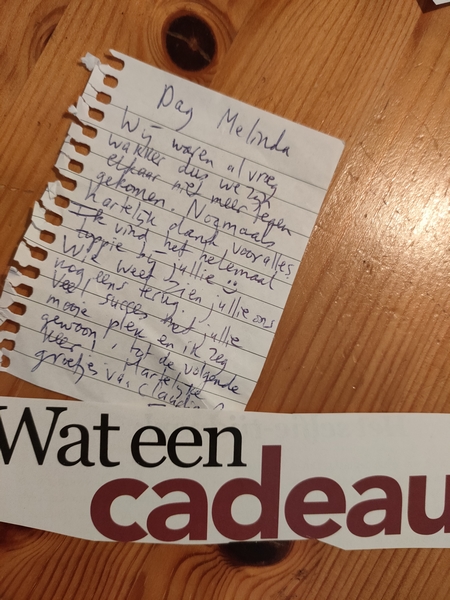 Dag Melinda
Wij waren al vroeg
wakker dus we zijn
elkaar niet meer tegen
gekomen. Nogmaals
hartelijk dank voor alles!
Ik vind het helemaal
toppie bij jullie
Wie weet zien jullie ons
nog eens terug. Jullie
veel succes met jullie
mooie plek en ik zeg
gewoon, tot de volgende
keer. Hartelijke
groetjes van Claudia
Wat een
cadeau